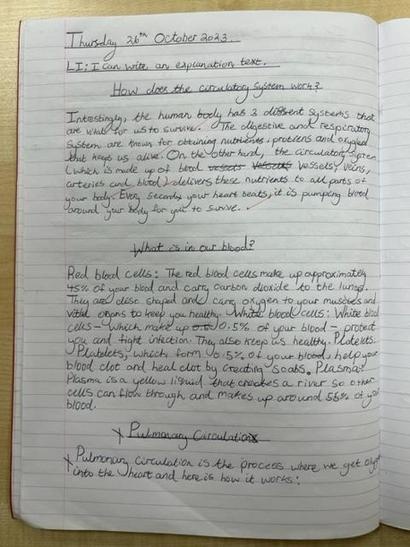 Thursday 26th October 2023.
LI: I can write an explanation text.
How does the circulatory system work?
Interestingly, the human body has 3 different systems that
are vital for us to survive. The digestive and respiratory
system are known for obtaining nutrients, proteins and oxygen
that keeps us alive. On the other hand, the circulatory system
(which is made up of blood vessels, veins,
arteries and blood) delivers these nutrients to all parts of
your body. Every your heart beats, it is pumping blood
around your body for you to survive.
What is in our blood?
Red blood cells: The red blood cells make up approximately
45% of your blood and carry carbon dioxide to the lungs.
They are disc shaped and carry oxygen to your muscles and
vital organs to keep you healthy. White blood cells: White blood
cells - which make up 0.5% of your blood - protect
you and fight infection. They also keep us healthy. Platelets:
Platelets, which form 0.5% of your blood, help your
blood clot and heal clot by creating scabs. Plasma:
Plasma is a yellow liquid that creates a river so other
cells can flow through and makes up around 55% of your
blood.
Pulmonary Circulation
Pulmonary circulation is the process where we get
into the heart and here is how it works: